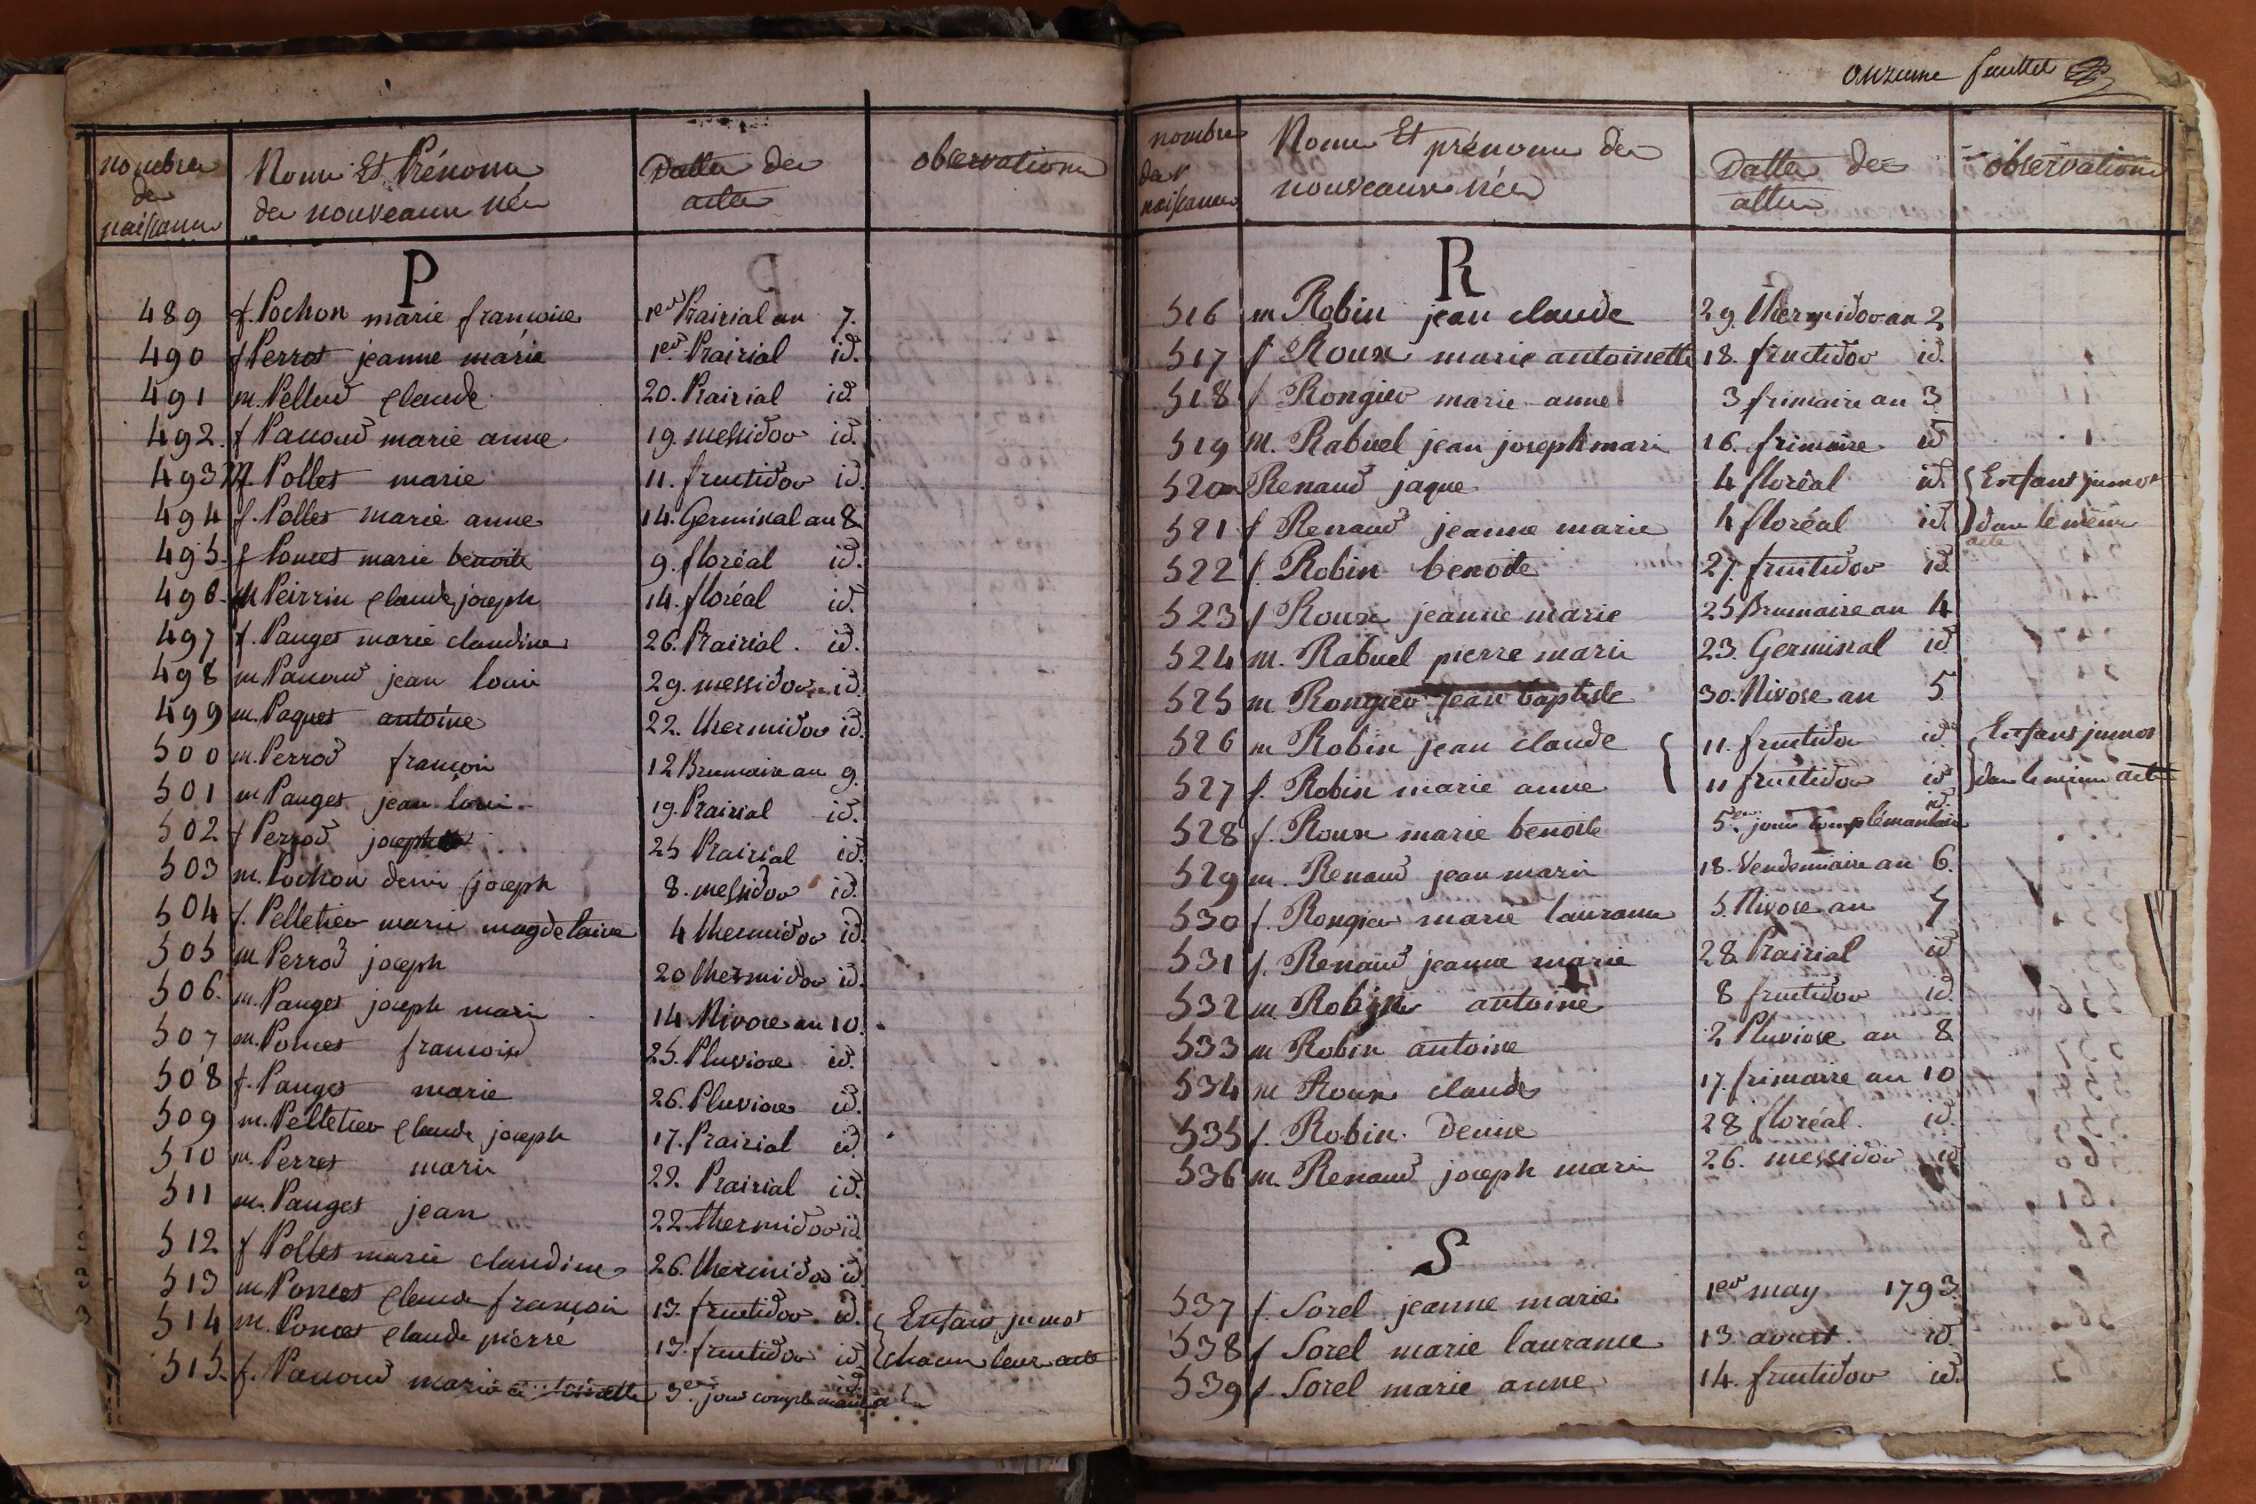 nombre de naissance
Noms Et Prénoms des nouveaux nés
Datte des actes
observations
P
489 f. Pochon marie françoise 1er Prairial an 7.
490 f Perret jeanne marie 1er Prairial id.
491 m. Pelloud Claude 20. Prairial id.
492. f Pacoud marie anne 19. messidor id.
493 f. Pollet marie 11. fructidor id.
494 f. Pollet marie anne 14. Germinal an 8
495. f Poncet marie benoite 9. floréal id.
496. m Peirrin Claude joseph 14. floréal id.
497 f. Pauget marie claudine 26. Prairial. id.
498 m. Pacoud jean louis 29. messidor id.
499 m. Paquet antoine 22. thermidor id.
500 m. Perrod françois 12 Brumaire an 9.
501 m Pauget jean louis 19. Prairial id.
502 f Perrod joseph 25 Prairial id.
503 m. Pochon denis joseph 8. messidor id.
504 f. Pelletier marie magdelaine 4 thermidor id.
505 m Perrod joseph 20 thermidor id.
506. m. Pauget joseph marie 14 Nivose an 10.
507 m. Poncet françois 25. Pluviose id.
508 f. Pauget marie 26. Pluviose id.
509 m. Pelletier Claude joseph 17. Prairial id
510 m. Perret marie 22. Prairial id.
511 m. Pauget jean 22. thermidor id.
512 f Pollet marie claudine 26. thermidor id.
513 m Poncet Claude françois 13. fructidor id. Enfans jumos
514 m. Poncet Claude pierre 13. fructidor id chacun leur acte
515. f. Pacoud marie antoinette 3e. jour complémentaire id
onzieme feuillet
nombre des naissances
Noms Et prénoms des nouveaux nés
Datte des actes
observations
R
516 m Robin jean claude 29. thermidor an 2
517 f Roux marie antoinette 18. fructidor id.
518 f Rongier marie anne 3 frimaire an 3
519 m. Rabuel jean joseph marie 16. frimaire id
520 m Renaud jaque 4 floréal id. Enfans jumos
521 f Renaud jeanne marie 4 floréal id. dans le même acte
522 f. Robin benoite 27. fructidor id
523 f Roux jeanne marie 25 Brumaire an 4
524 m. Rabuel pierre marie 23. Germinal id
525 m Rongier jean baptiste 30. Nivose an 5
526 m Robin jean claude 11. fructidor id Enfans jumos
527 f. Robin marie anne 11 fructidor id dans le même acte
528 f. Roux marie benoite 5e. jour complémentaire id
529 m. Renaud jean marie 18. Vendemiaire an 6.
530 f. Rongier marie laurance 5. Nivose an 7
531 f. Renaud jeanne marie 28 Prairial id
532 m. Robin antoine 8 fructidor id.
533 m Robin antoine 2 Pluviose an 8
534 m Roux claude 17. frimaire an 10
535 f. Robin. denise 28 floréal. id.
536 m. Renaud joseph marie 26. messidor id
S
537 f. Sorel jeanne marie 1er may 1793.
538 f Sorel marie laurance 13 aoust id
539 f Sorel marie anne 14. fructidor id.